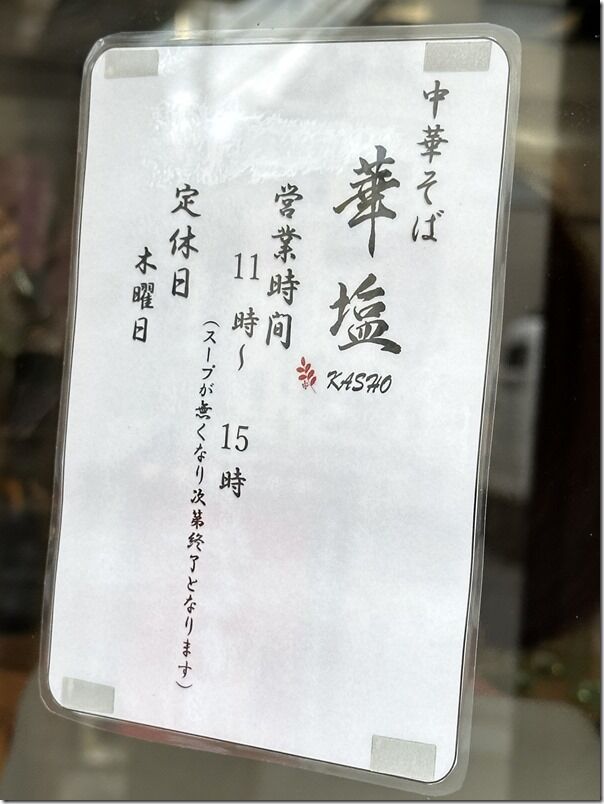 中華そば
華塩
KASHO
営業時間
11時～15時
(スープが無くなり次第終了となります)
定休日
木曜日